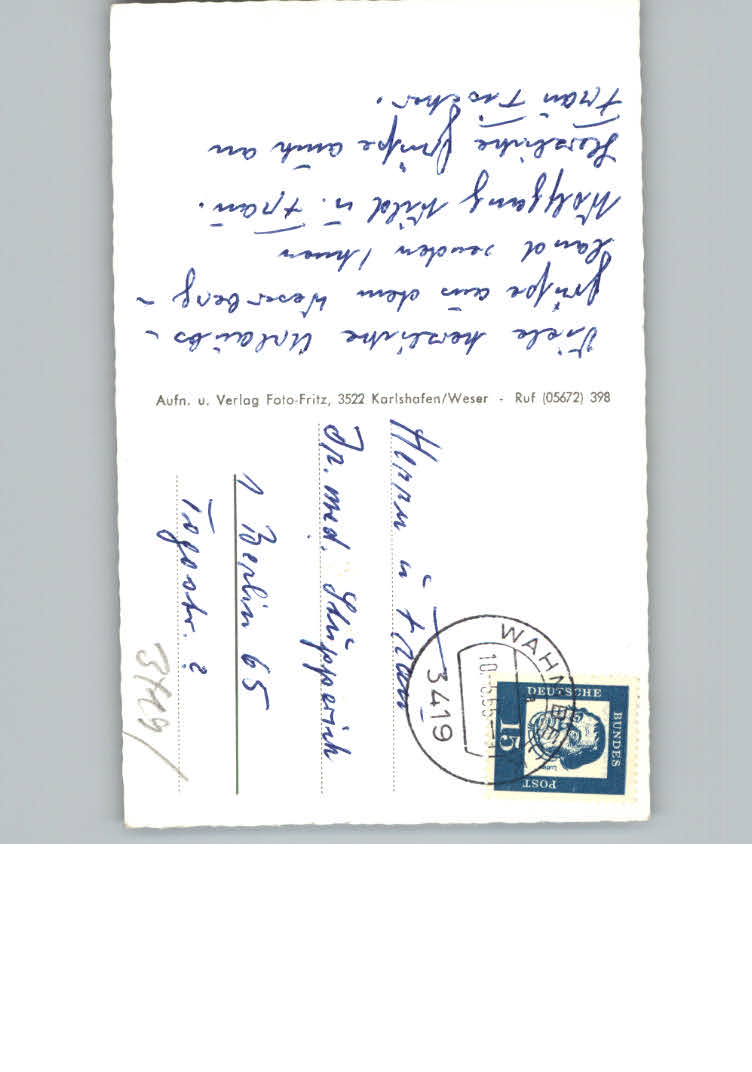 Viele herzliche Urlaubs-
grüße aus dem Weserberg-
land senden Ihnen
Wolfgang Kild u. Frau.
Herzliche Grüße auch an
Frau Tischer.
Aufn. u. Verlag Foto-Fritz, 3522 Karlshafen/Weser - Ruf (05672) 398
Herrn u Frau
Dr. med. Stüpperich
1 Berlin 65
Togostr. 2
3419/
3419
DEUTSCHE
BUNDES
POST
15
Luther